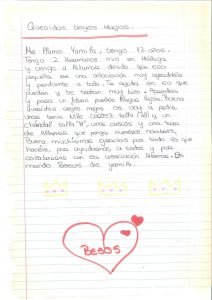 Queridos Reyes Magos.
Me llamo Yamila, tengo 13 años.
Tengo 2 Hermanos vivo en Málaga
y vengo a Altamar desde que era
pequeña, es una asociación muy agradable
y pendiente a todo. Te ayuda en lo que
pueden y te tratan muy bien. Aprendes
y pasa un
Queridos reyes magos os voy a pedir
unas tenis Nike talla y un
chándal talla "M", unas cosas y una taza
de Altamar que ponga nuestros nombres,
Bueno muchisimas gracias por todo lo que
hacéis, por ayudarnos a todos y por
colaborar con esa asociación Altamar. Os
mando Besos de yamila.
Besos